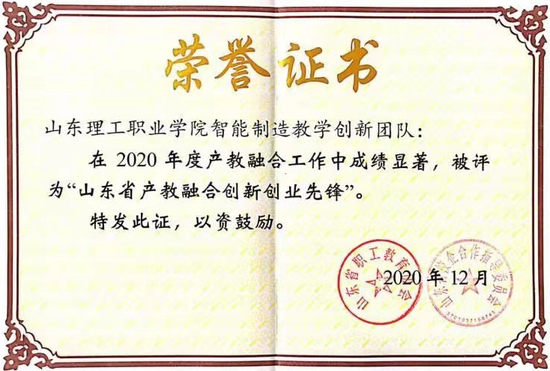 荣誉证书
山东理工职业学院智能制造教学创新团队：
在 2020 年度产教融合工作中成绩显著，被评
为“山东省产教融合创新创业先锋”。
特发此证，以资鼓励。
山东省职工教育协会
2020 年 12 月